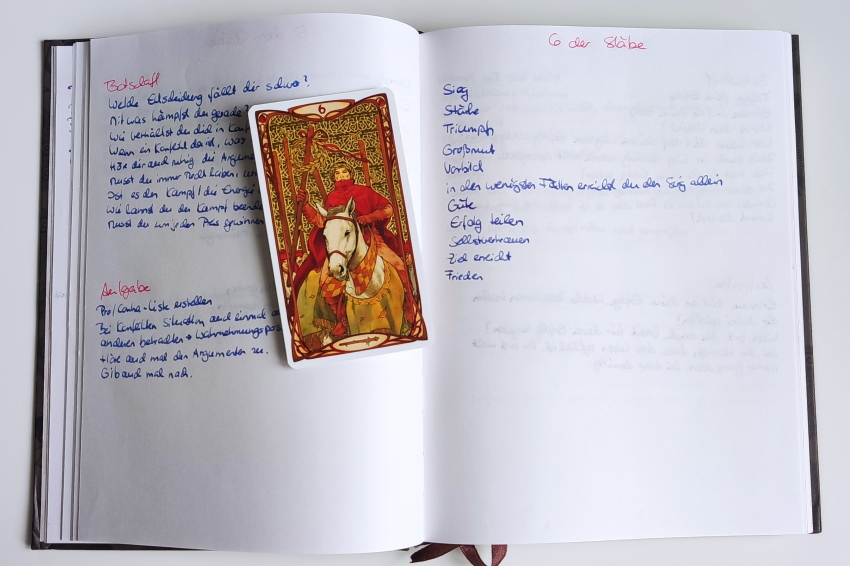 Botschaft
Welche Entscheidung fällt dir schwer?
Mit was kämpfst du gerade?
Wie verhältst du dich in Konf
Wenn ein Konflikt da ist, was
Hör dir auch ruhig die Argume
Musst du immer Recht haben,
Ist es den Kampf / die Energie
Wie kannst du den Kampf beende
Musst du um jeden Preis gewinnen
Aufgabe
Pro/Contra-Liste erstellen
Bei Konflikten Situation auch einmal
anderen betrachten → Wahrnehmungspos
Höre auch mal den Argumenten zu.
Gib auch mal nach.
6
6 der Stäbe
Sieg
Stärke
Triumph
Großmut
Vorbild
in den wenigsten Fällen erreichst du den Sieg allein
Güte
Erfolg teilen
Selbstvertrauen
Ziel erreicht
Frieden